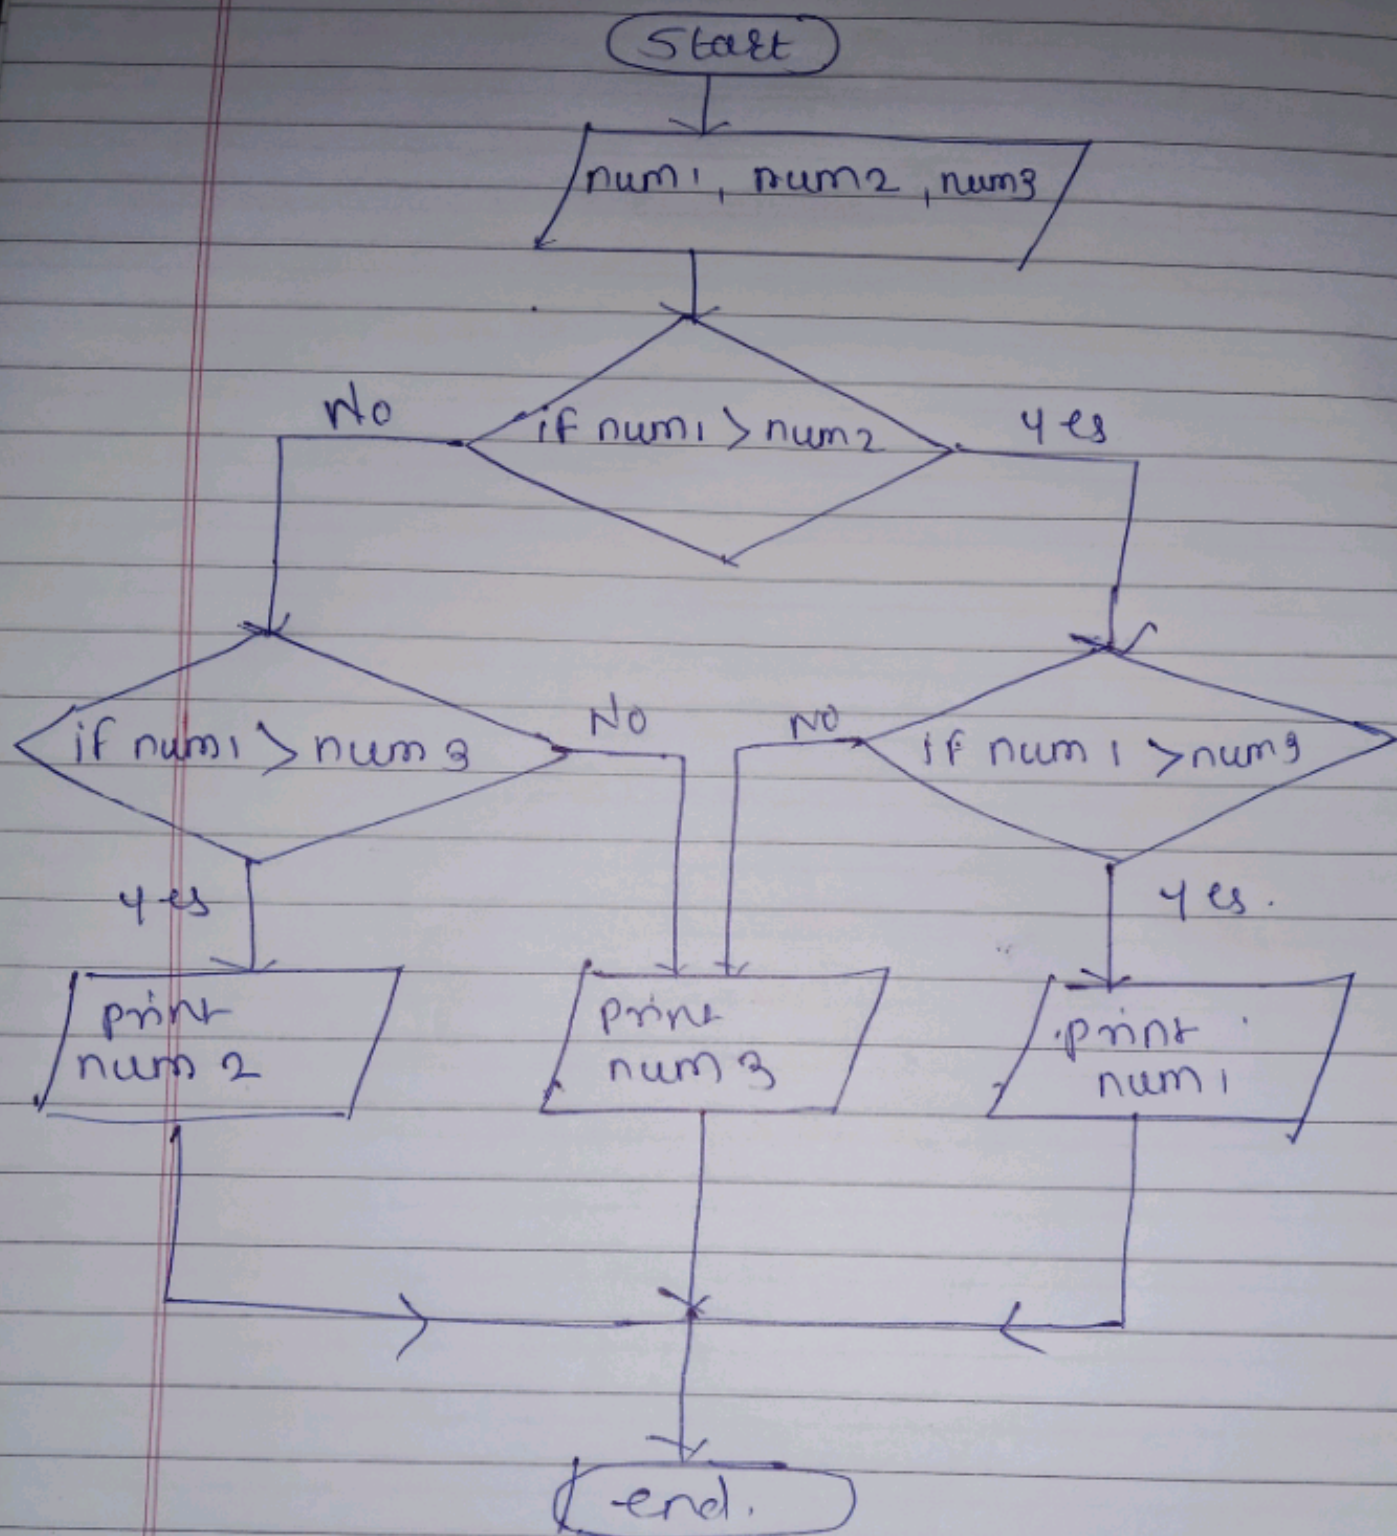 Start
num1, num2, num3
if num1 > num2
No
yes
if num1 > num3
No
No
if num1 > num3
yes
yes.
print
num 2
print
num 3
print
num 1
end.